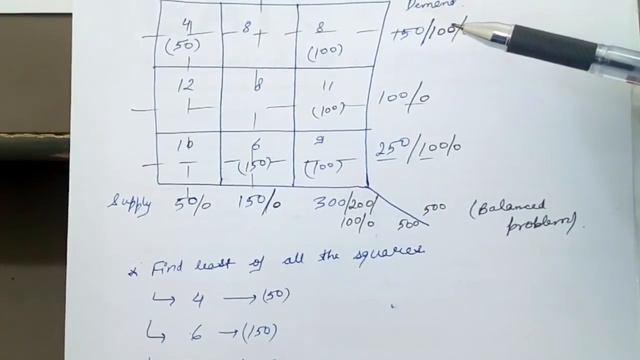 Demand
4 8 8 150/100/0
(50) (100)
12 8 11 100/0
(100)
16 6 9 250/100/0
(150) (100)
Supply 50/0 150/0 300/200/ 500 (Balanced
100/0 500 problem).
* Find least of all the squares
↳ 4 → (50)
↳ 6 → (150)